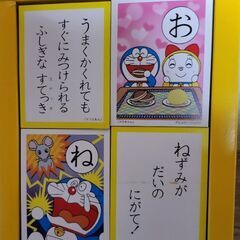 うまくかくれても
すぐにみつけられる
ふしぎな すてっき
お
ね
ねずみが
だいの
にがて!